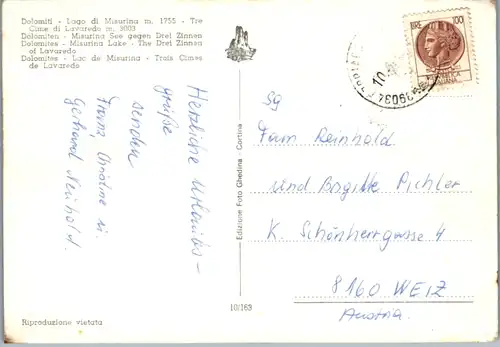 Dolomiti - Lago di Misurina m. 1755 - Tre
Cime di Lavaredo m. 3003
Dolomiten - Misurina See gegen Drei Zinnen
Dolomites - Misurina Lake - The Drei Zinnen
of Lavaredo
Dolomites - Lac de Misurina - Trois Cimes
de Lavaredo
Herzliche Urlaubs-
grüße
senden
Franz, Christine u.
Gerhard Neuhold.
Riproduzione vietata
Edizione Foto Ghedina - Cortina
10/163
LIRE 100
39034
Sg
Fam Reinhold
und Brigitte Pichler
K. Schönherrgasse 4
8160 WEIZ
Austria.